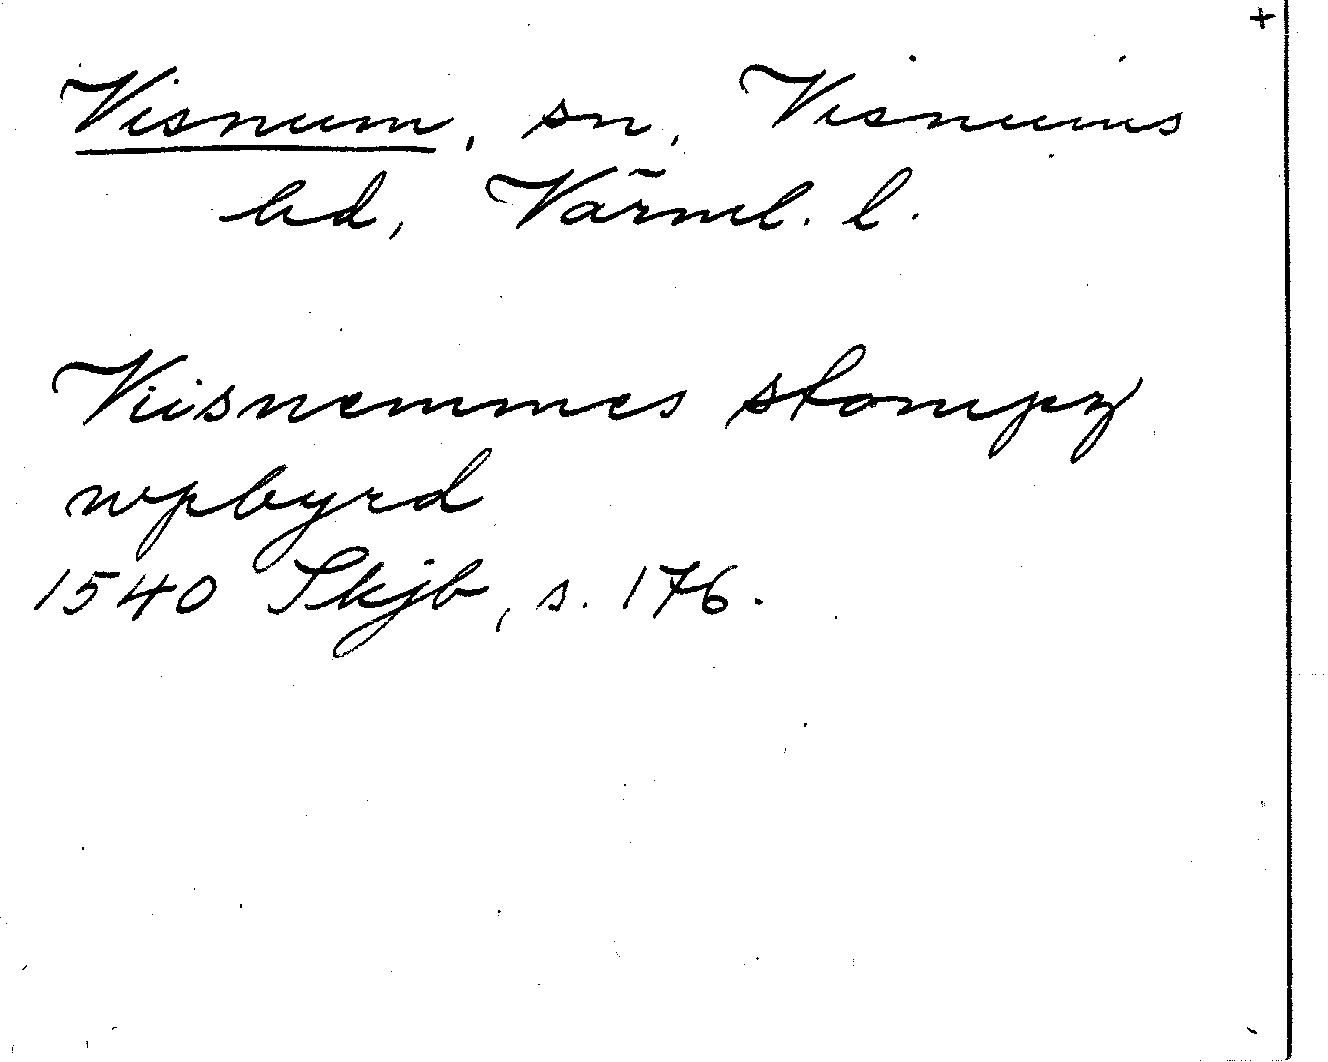 +
Visnum, sn, Visnums
hd, Värml. l.
Viisnemmes stompz
wpbyrd
1540 Skjb, s. 176.